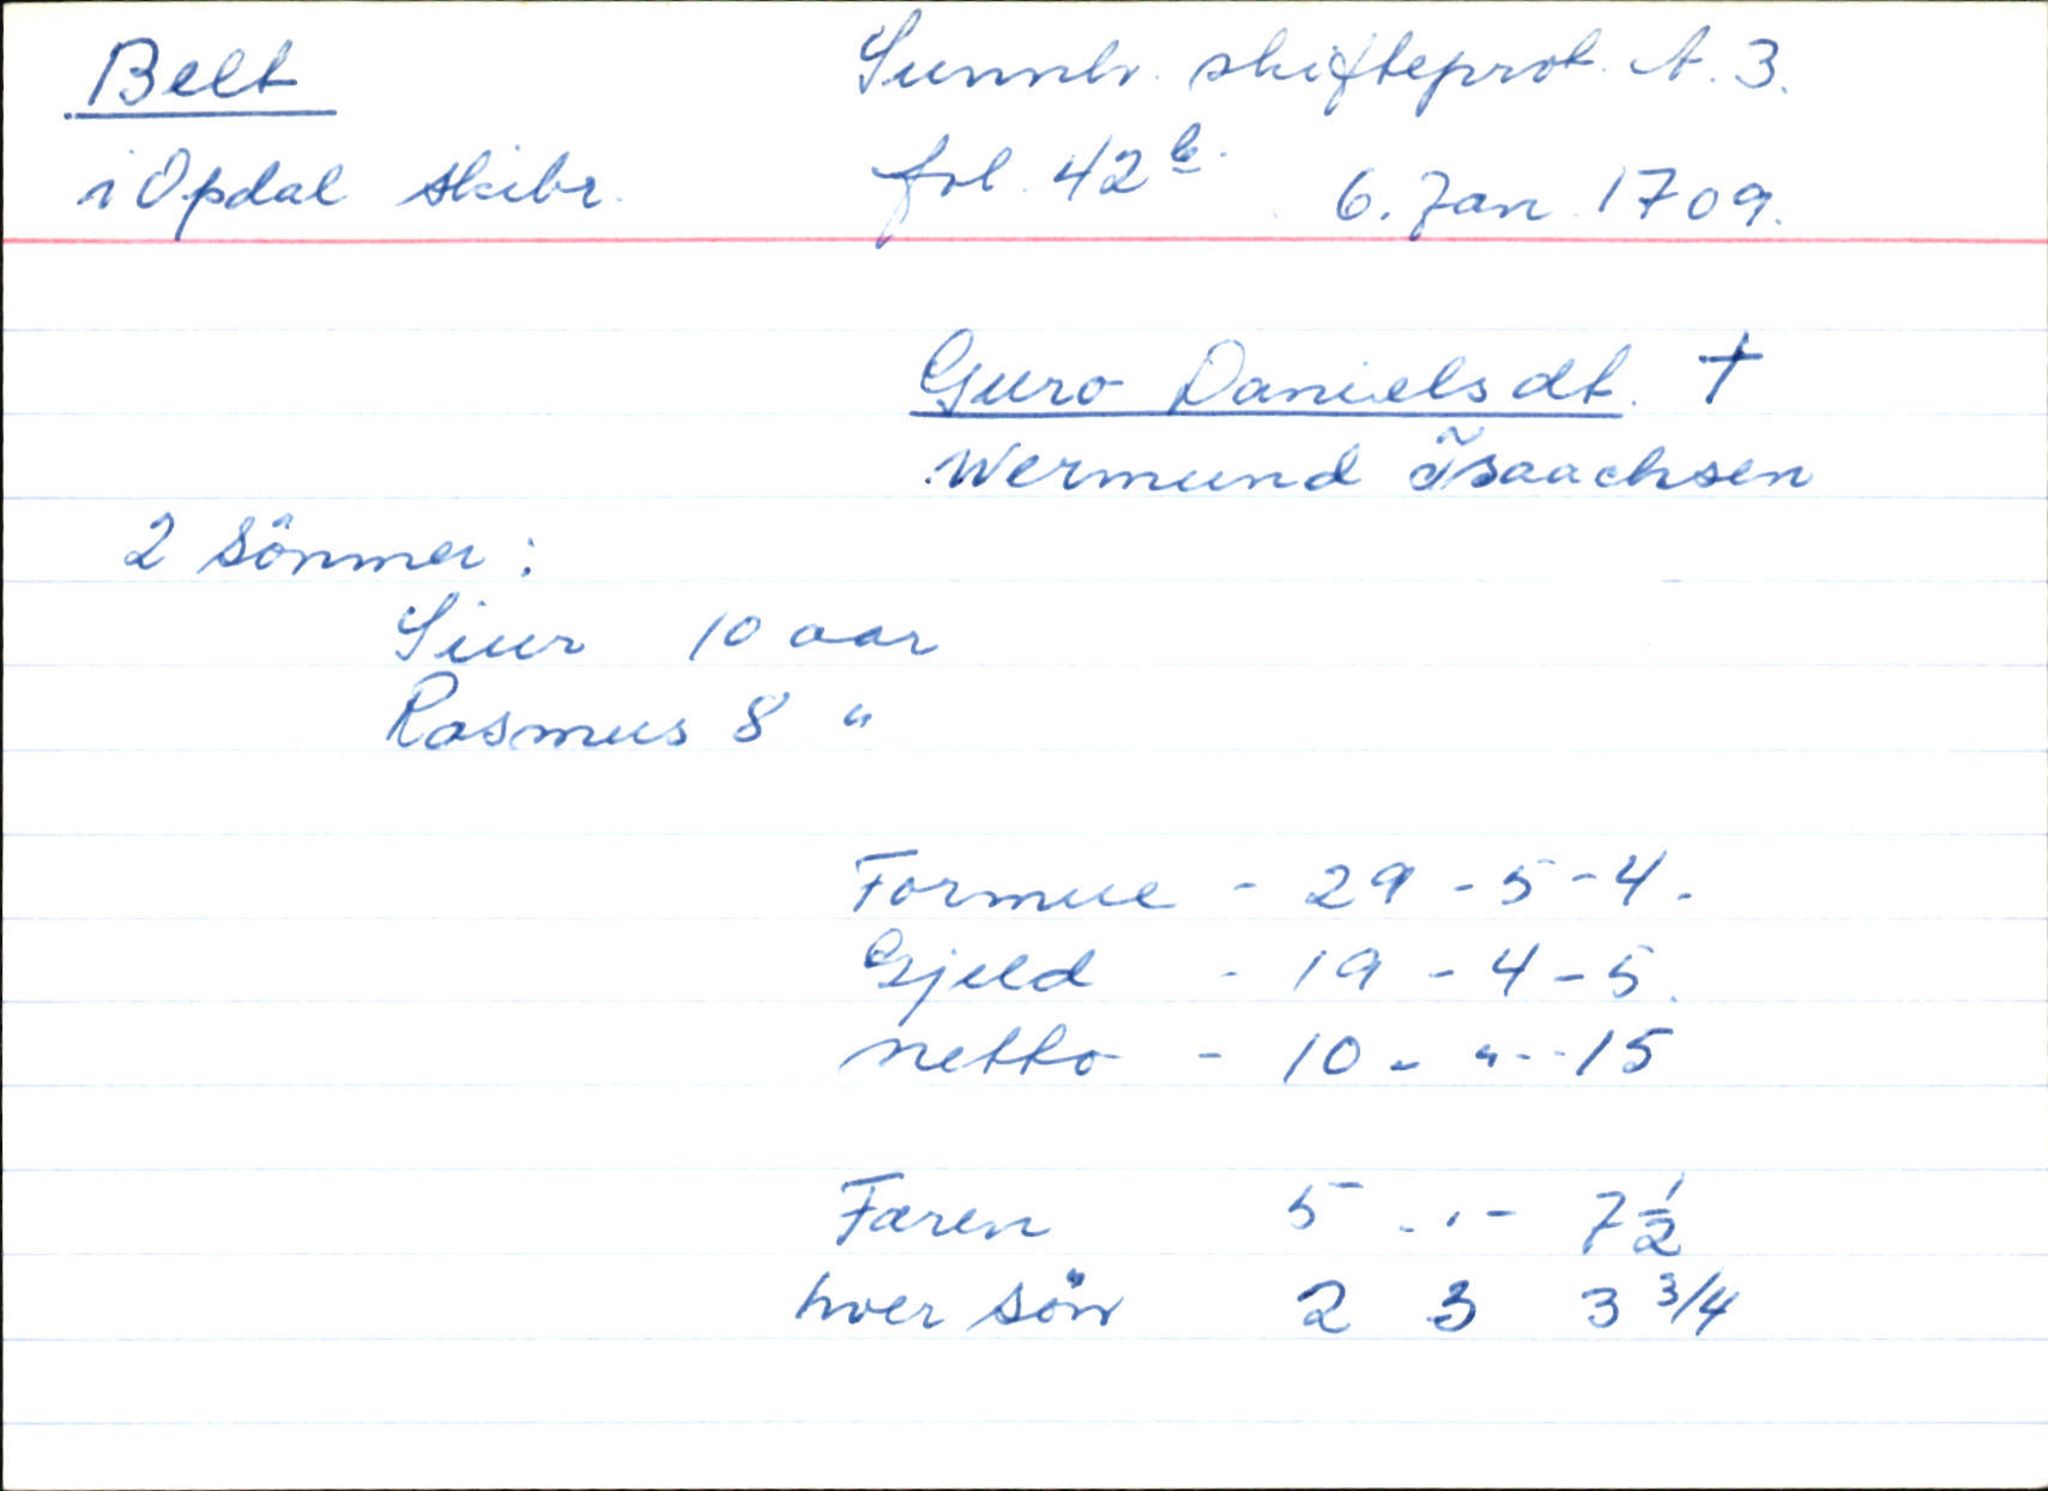 Belt
Sunnhr. skifteprot. A. 3.
i Opdal skibr.
fol. 42b. 6. Jan. 1709.
Guro Danielsdt. †
Wermund Isaachsen
2 sönner:
Siur 10 aar
Rasmus 8 "
Formue - 29 - 5 - 4.
Gjeld - 19 - 4 - 5.
netto - 10 - " - 15
Faren 5 - " - 7 1/2
hver sön 2 3 3 3/4